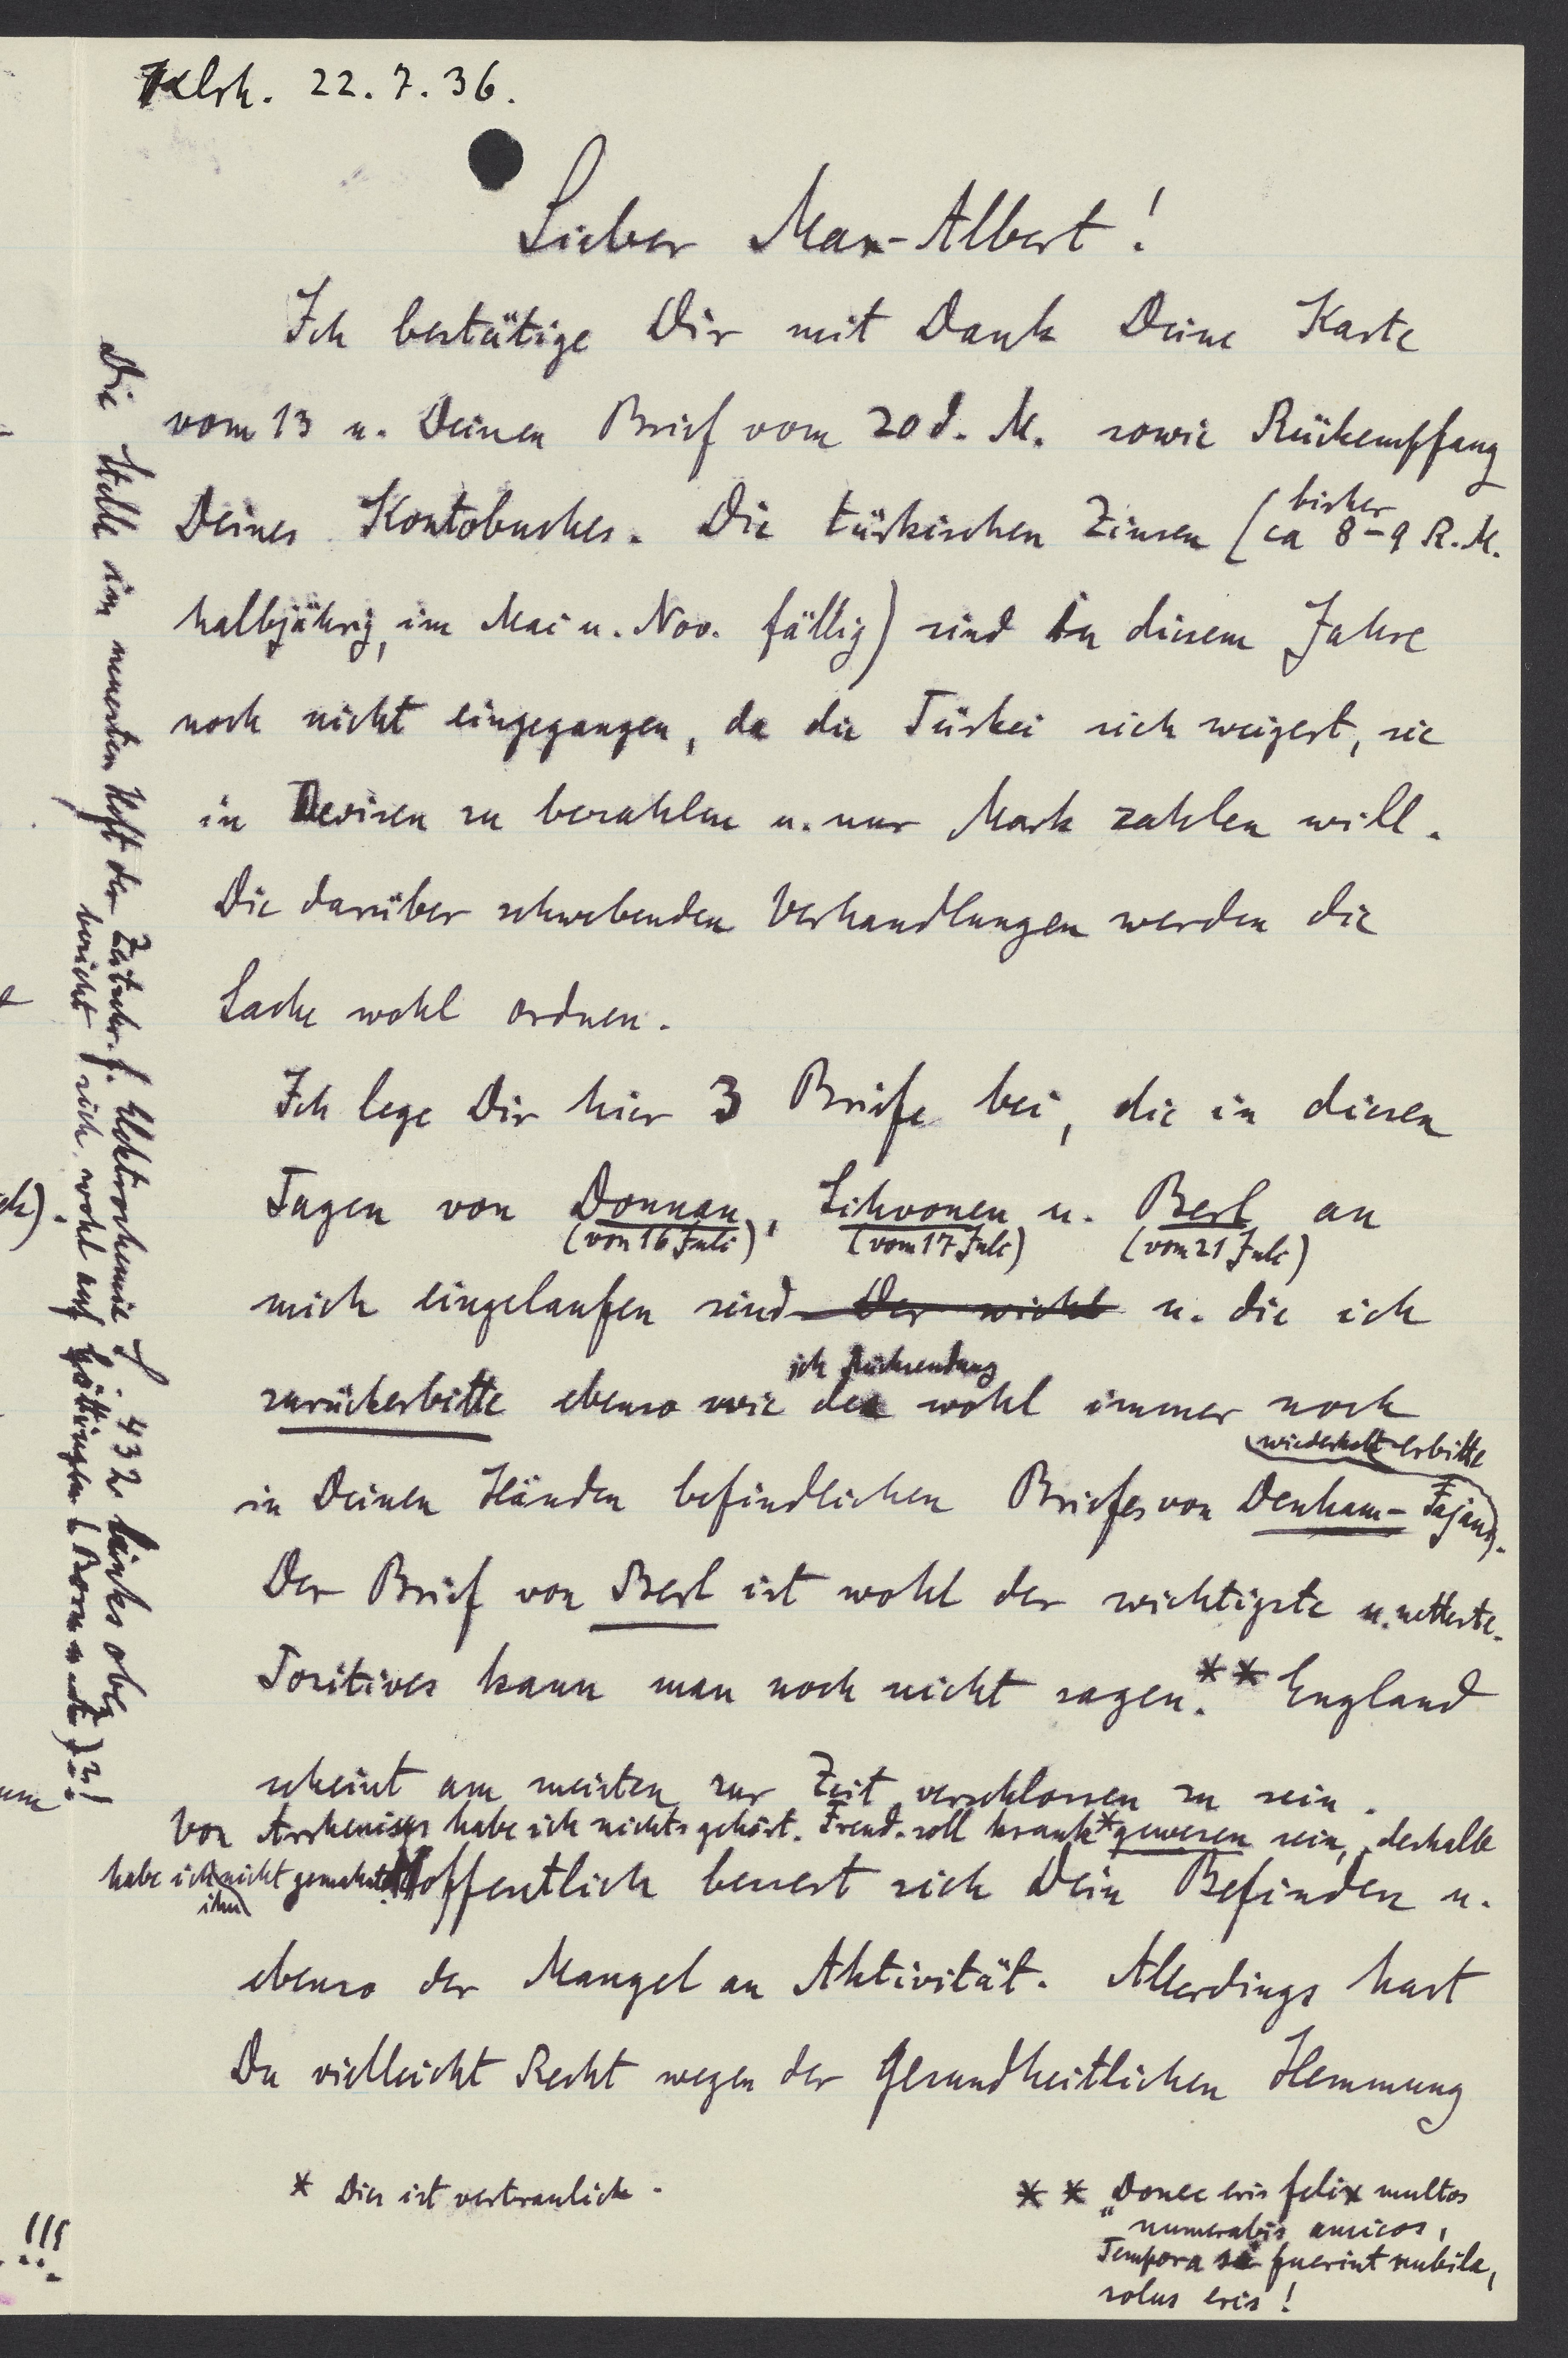 Klsh. 22.7.36.
Lieber Max-Albert!
Ich bestätige Dir mit Dank Deine Karte
vom 13 u. Deinen Brief vom 20 d. M. sowie Rückempfang
Deines Kontobuches. Die türkischen Zinsen (bisher ca 8-9 R.M.
halbjährig, im Mai u. Nov. fällig) sind in diesem Jahre
noch nicht eingegangen, da die Türkei sich weigert, sie
in Devisen zu bezahlen u. nur Mark zahlen will.
Die darüber schwebenden Verhandlungen werden die
Sache wohl ordnen.
Ich lege Dir hier 3 Briefe bei, die in diesen
Tagen von Donnan, Sihvonen u. Berl an
(von 16 Juli) (vom 17 Juli) (vom 21 Juli)
mich eingelaufen sind Der wicht u. die ich
ich Rücksendung
zurückerbitte ebenso wie der wohl immer noch
wiederholt erbitte
in Deinen Händen befindlichen Briefes von Denham-Fajans.
Der Brief von Berl ist wohl der wichtigste u. netteste.
Positives kann man noch nicht sagen.** England
scheint am meisten zur Zeit verschlossen zu sein.
Von Arrhenius habe ich nichts gehört. Freud. soll krank* gewesen sein, deshalb
habe ich ihn nicht gemahnt! Hoffentlich bessert sich Dein Befinden u.
ebenso der Mangel an Aktivität. Allerdings hast
Du vielleicht Recht wegen der Gesundheitlichen Hemmung
* Dies ist vertraulich.
** "Donec eris felix multos
numerabis amicos,
Tempora si fuerint nubila,
solus eris!
Die Stelle im neuesten Heft der Zeitschr. f. Elektrochemie S 432 links oben
bezieht sich wohl auf Göttingen (Born u. ) ?!
!!!